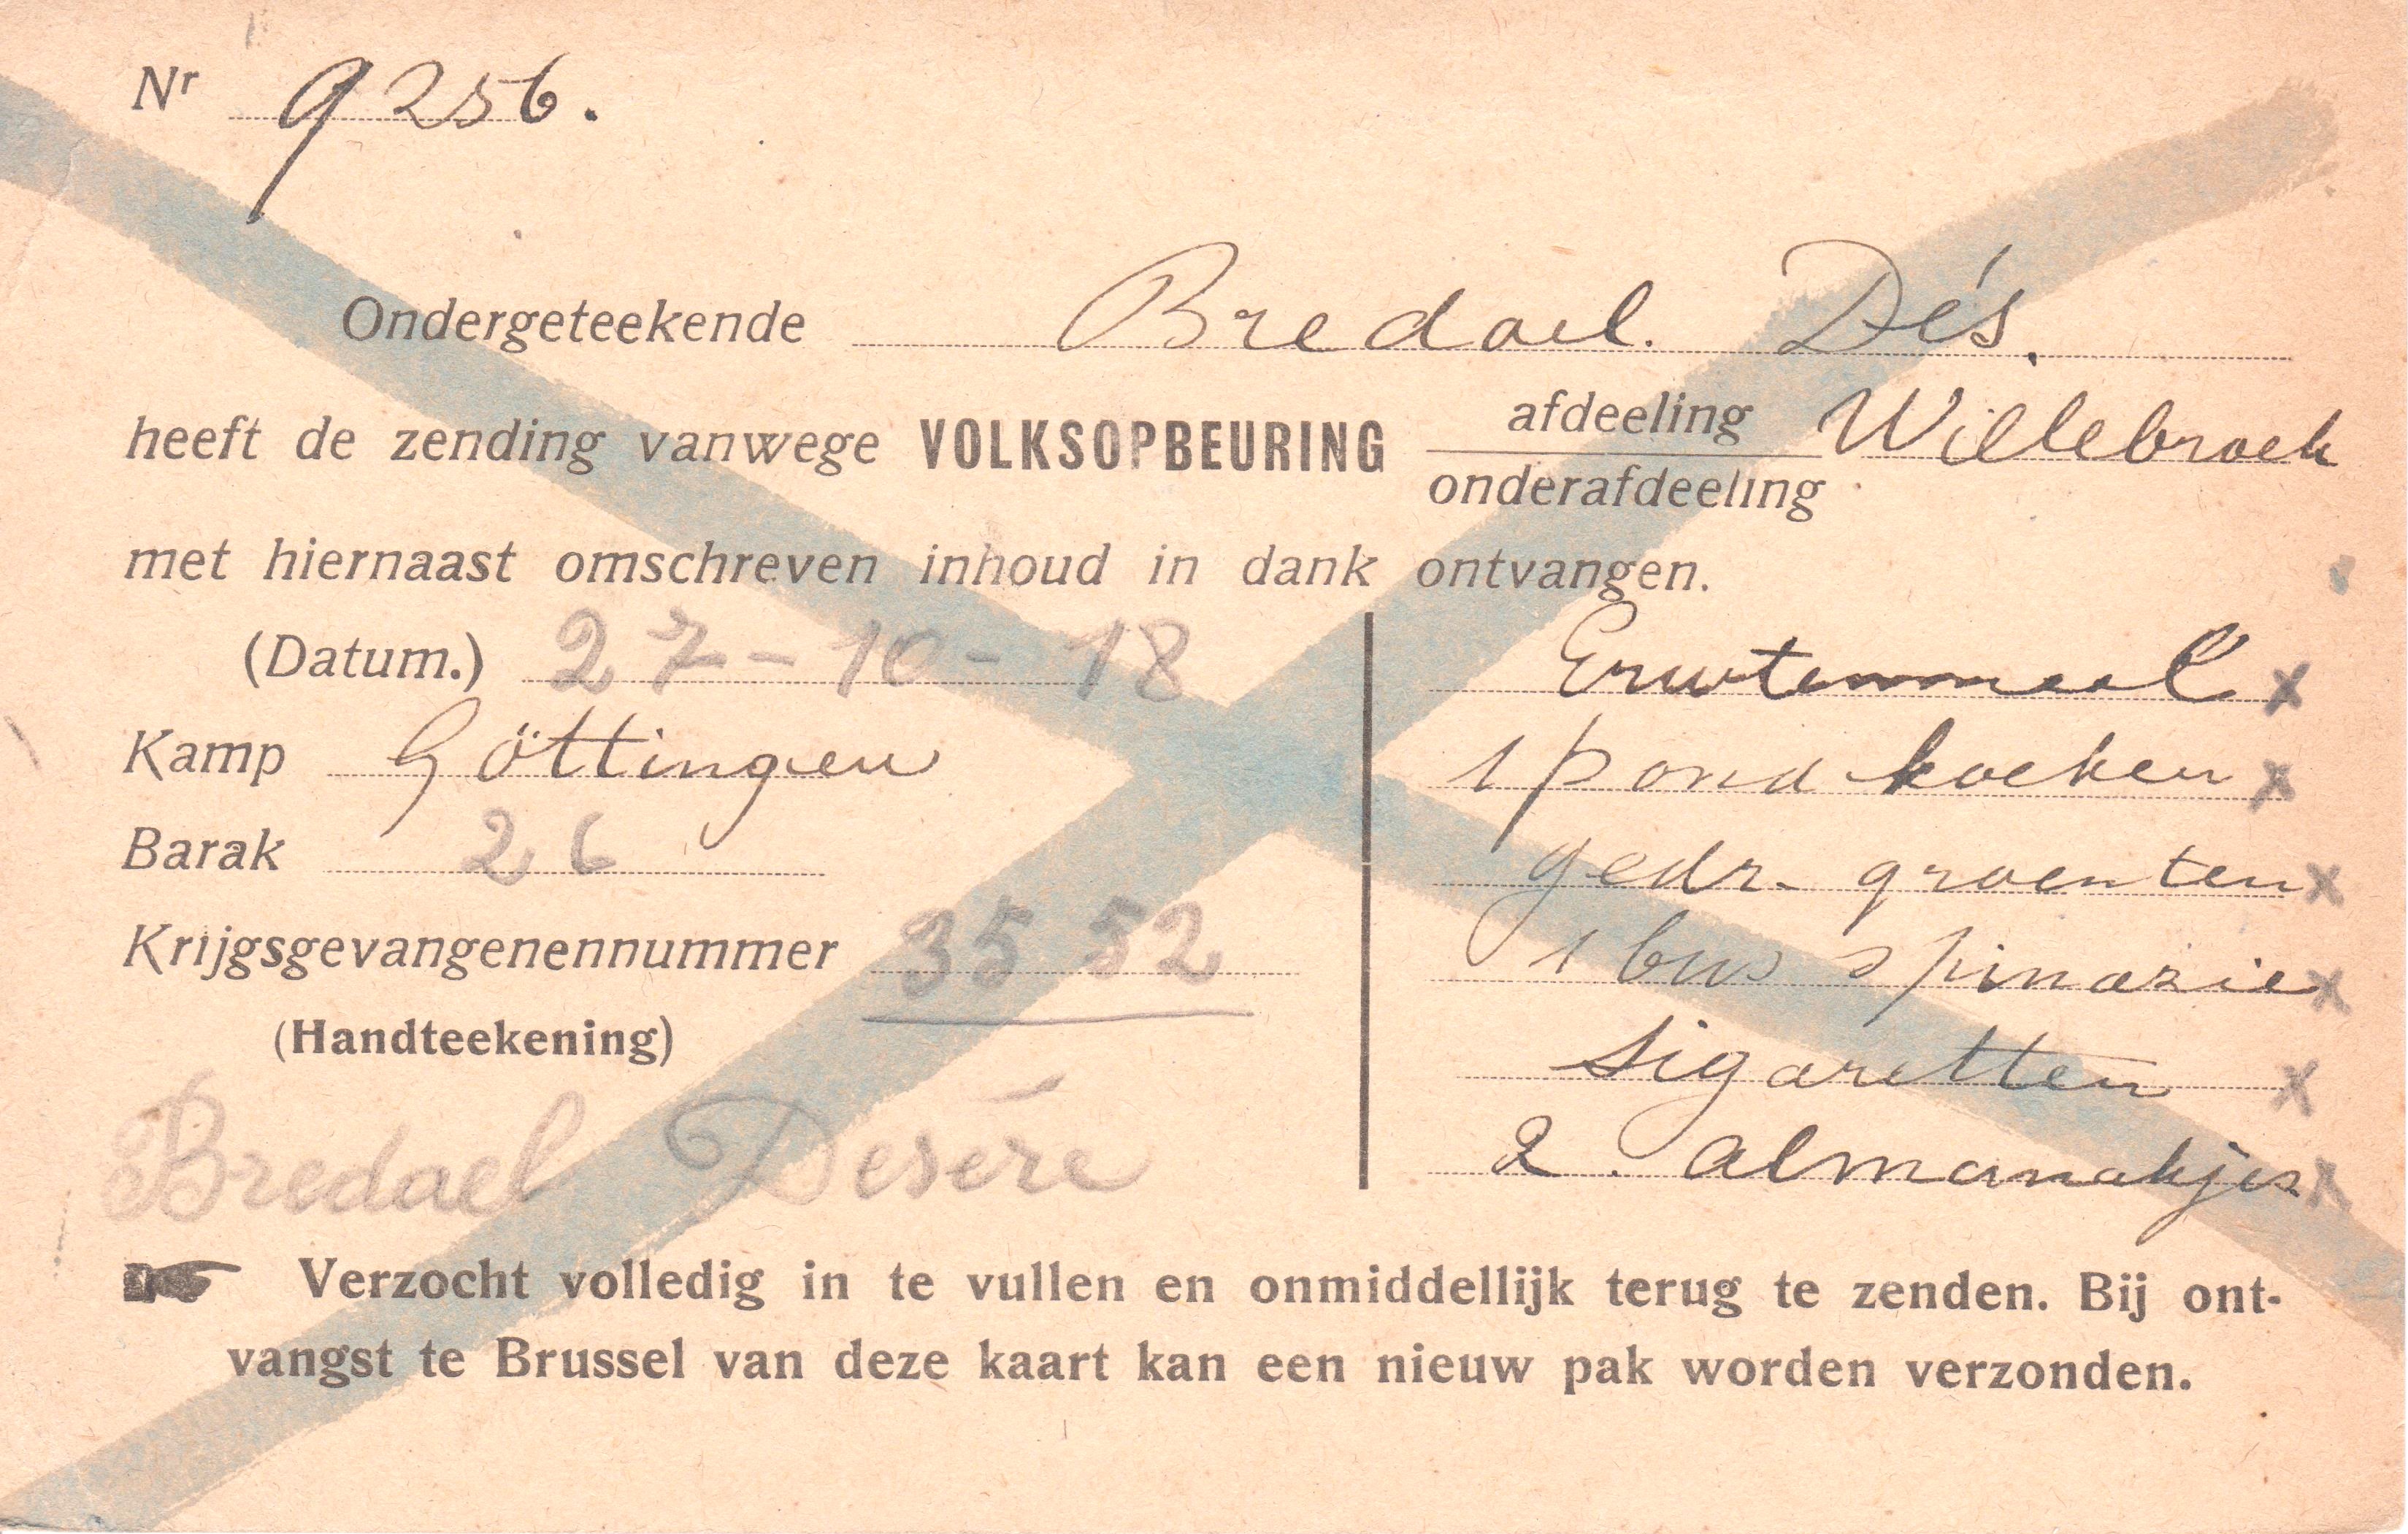 Nr 9256.
Ondergeteekende Bredael. Dés.
heeft de zending vanwege VOLKSOPBEURING afdeeling Willebroek
onderafdeeling
met hiernaast omschreven inhoud in dank ontvangen.
(Datum.) 27-10-18
Kamp Göttingen
Barak 26
Krijgsgevangenennummer 3552
(Handteekening)
Bredael Deséré
Erwtenmeel x
1 pond koeken x
gedr. groenten x
1 bus spinazie x
sigaretten x
2. almanakjes x
☛ Verzocht volledig in te vullen en onmiddellijk terug te zenden. Bij ont-
vangst te Brussel van deze kaart kan een nieuw pak worden verzonden.